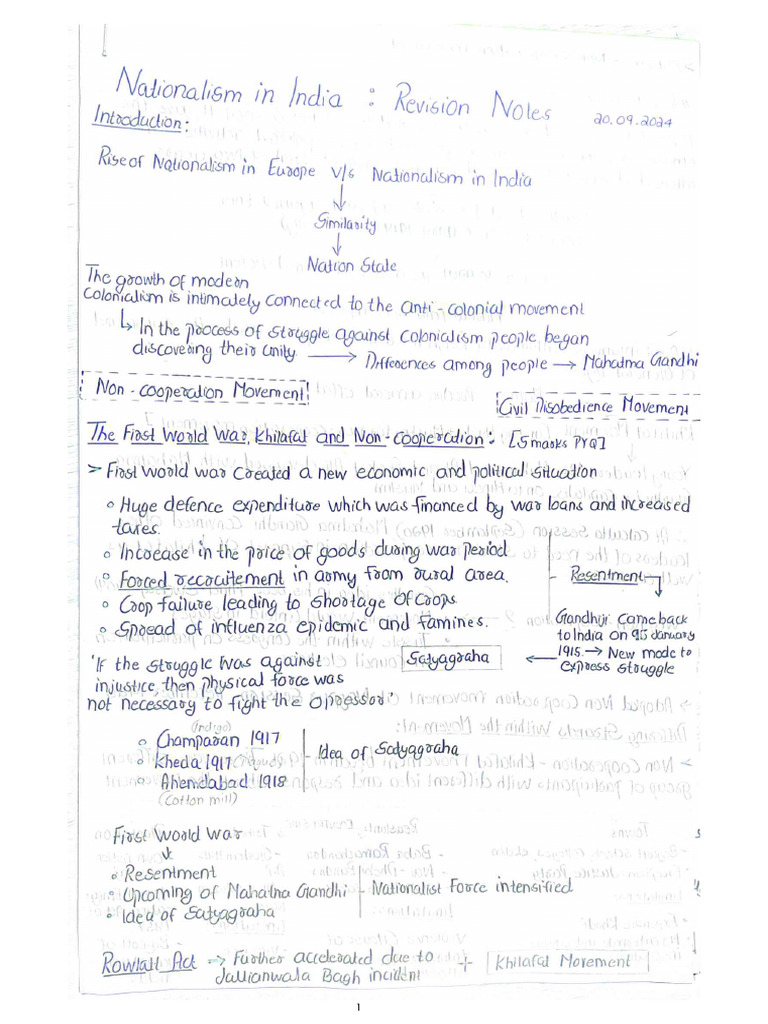 Nationalism in India : Revision Notes 20.09.2024
Introduction:
Rise of Nationalism in Europe v/s Nationalism in India
Similarity
Nation State
The growth of modern
Colonialism is intimately connected to the anti-colonial movement
In the process of struggle against colonialism people began
discovering their unity → Differences among people → Mahatma Gandhi
Non-cooperation Movement
Civil Disobedience Movement
The First World War, Khilafat and Non-cooperation: [5 marks PYQ]
> First World war created a new economic and political situation
Huge defence expenditure which was financed by war loans and increased
taxes.
Increase in the price of goods during war period
Forced recruitement in army from rural area.
Resentment
Crop failure leading to shortage of crops
Spread of influenza epidemic and famines.
Gandhiji came back
to India on 9th January
1915. → New mode to
express struggle
Satyagraha
'If the struggle was against
injustice then physical force was
not necessary to fight the opressor'
(Indigo)
Champaran 1917
Kheda 1917
Ahemdabad 1918
(Cotton mill)
Idea of Satyagraha
First World War
Resentment
Upcoming of Mahatma Gandhi
Idea of Satyagraha
Nationalist Force intensified
Rowlatt Act → Further accelerated due to
Jallianwala Bagh incident
+ Khilafat Movement
1